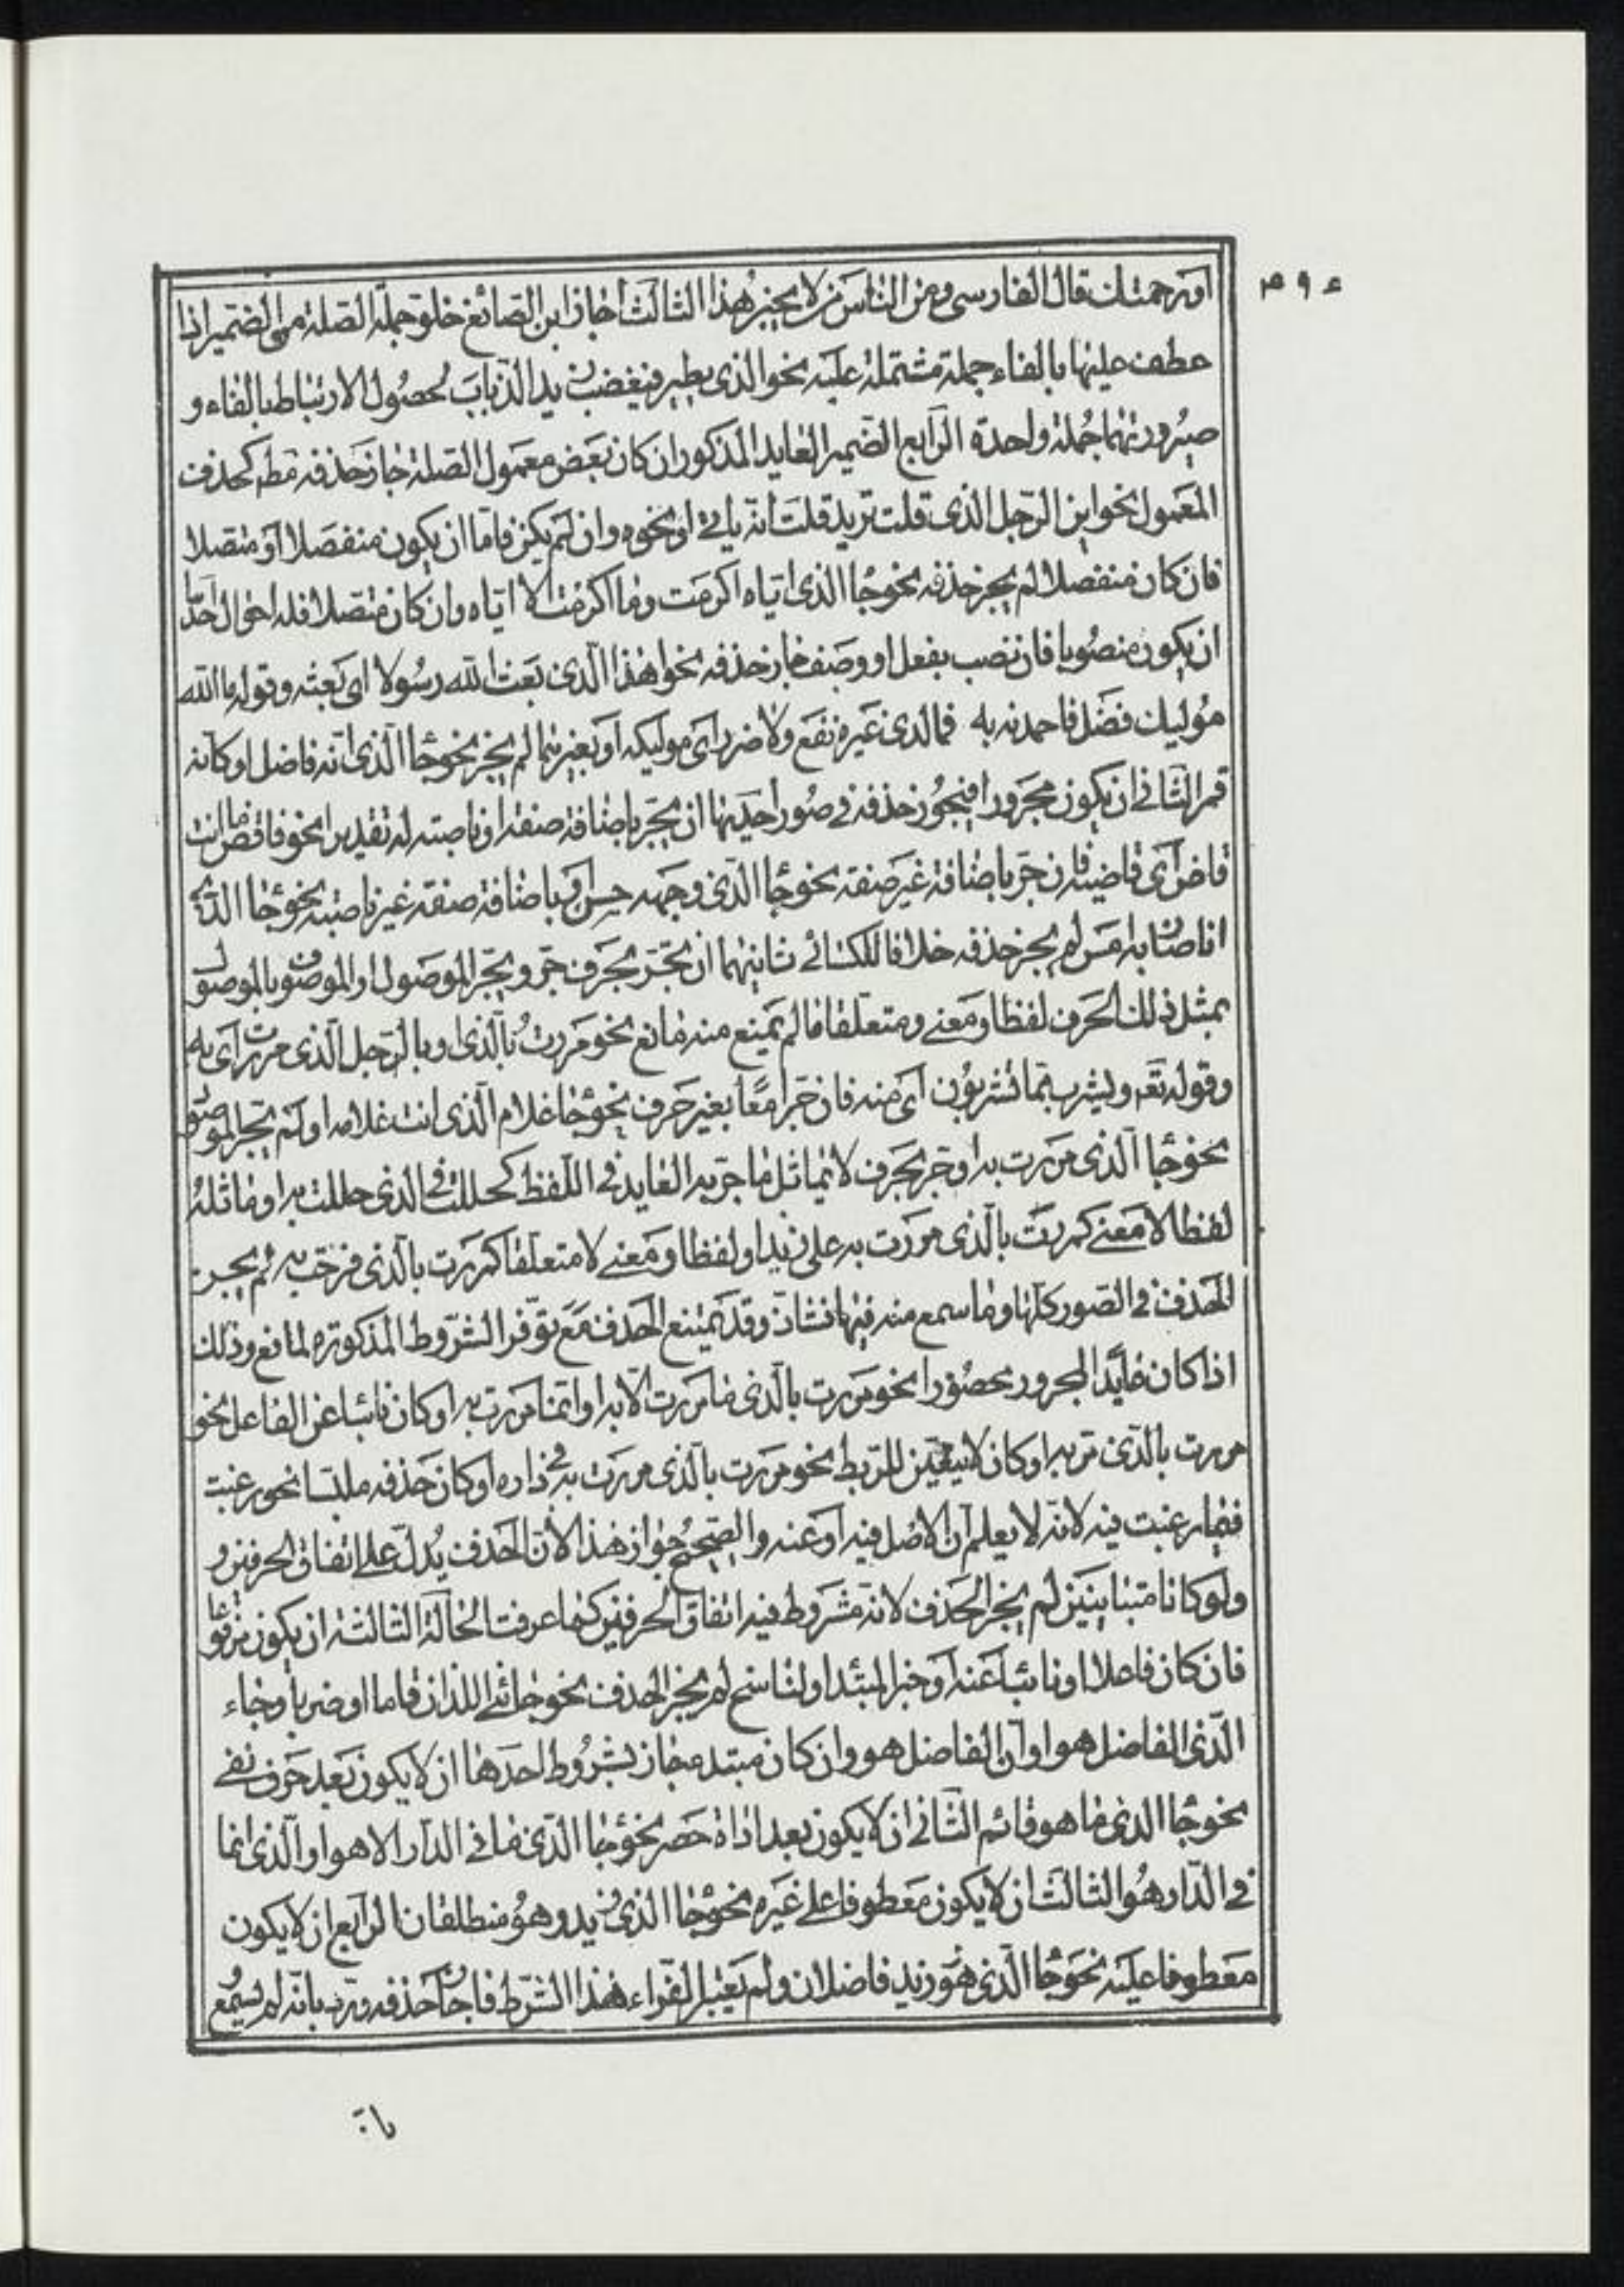 او رحمتك قال الفارسى ومن الناس من لا يجيز هذا الثالث اجاز ابن الصائغ خلو جملة الصلة من الضمير اذا
عطف عليها بالفاء جملة مشتملة عليه نحو الذى يطير فيغضب زيد الذباب لحصول الارتباط بالفاء و
صيرورتهما جملة واحدة الرابع الضمير العايد المذكور ان كان بعض معمول الصلة جاز حذفه مطلقا كحذف
المعمول نحو اين الرجل الذى قلت تريد قلت انه ياتى او نحوه وان لم يكن فاما ان يكون منفصلا او متصلا
فان كان منفصلا لم يجز حذفه نحو جاء الذى اياه اكرمت وما اكرمت الا اياه وان كان متصلا فله احوال احدها
ان يكون منصوبا فان نصب بفعل او وصف جاز حذفه نحو اهذا الذى بعث الله رسولا اى بعثه وقوله ما الله
موليك فضل فاحمدنه به فما لدى غيره نفع ولا ضرر اى موليكه او بغيرهما لم يجز نحو جاء الذى انه فاضل او كانه
قمر الثانى ان يكون مجرورا فيجوز حذفه فى صور احديها ان يجر باضافة صفة او ناصبة له تقديرا نحو فاقض ما انت
قاض اى قاضيه فان جر باضافة غير صفة نحو جاء الذى وجهه حسن او باضافة صفة غير ناصبة نحو جاء الذى
انا ضاربه امس لم يجز حذفه خلافا للكسائى ثانيهما ان يجر بحرف جر ويجر الموصول او الموصوف بالموصول
بمثل ذلك الحرف لفظا ومعنى ومتعلقا ما لم يمنع منه مانع نحو مررت بالذى او بالرجل الذى مررت اى به
وقوله تعه ويشرب مما تشربون اى منه فان جر امعا بغير حرف نحو جاء غلام الذى انت غلامه او لم يجر الموصول
نحو جاء الذى مررت به او جر بحرف لا يماثل ما جر به العايد فى اللفظ كحللت فى الذى حللت به او ماثله
لفظا لا معنى كمررت بالذى مررت به على زيد او لفظا ومعنى لا متعلقا كمررت بالذى فرحت به لم يجز
الحذف فى الصور كلها وما سمع منه فيها فشاذ وقد يمتنع الحذف مع توفر الشروط المذكورة لمانع وذلك
اذا كان عايد المجرور محصورا نحو مررت بالذى ما مررت الا به او انما مررت به او كان نائبا عن الفاعل نحو
مررت بالذى مر به او كان لا يتعين للربط نحو مررت بالذى مررت به فى داره او كان حذفه ملبسا نحو رغبت
فيما رغبت فيه لانه لا يعلم ان الاصل فيه او عنه والصحيح جواز هذا لان الحذف يدل على اتفاق الحرفين و
ولو كانا متباينين لم يجز الحذف لانه مشروط فيه اتفاق الحرفين كما عرفت الحالة الثالثة ان يكون مرفوعا
فان كان فاعلا او نائبا عنه او خبر المبتدا او لناسخ لم يجز الحذف نحو جائنى اللذان قاما او ضربا وجاء
الذى الفاضل هو او ان الفاضل هو وان كان مبتدء جاز بشروط احدها ان لا يكون بعد حرف نفى
نحو جاء الذى ما هو قائم الثانى ان لا يكون بعد اداة حصر نحو جاء الذى ما فى الدار الا هو او الذى انما
فى الدار هو الثالث ان لا يكون معطوفا على غيره نحو جاء الذى زيد وهو منطلقان الرابع ان لا يكون
معطوفا عليه نحو جاء الذى هو وزيد فاضلان ولم يعتبر الفراء هذا الشرط فاجاز حذفه ورد بانه لم يسمع